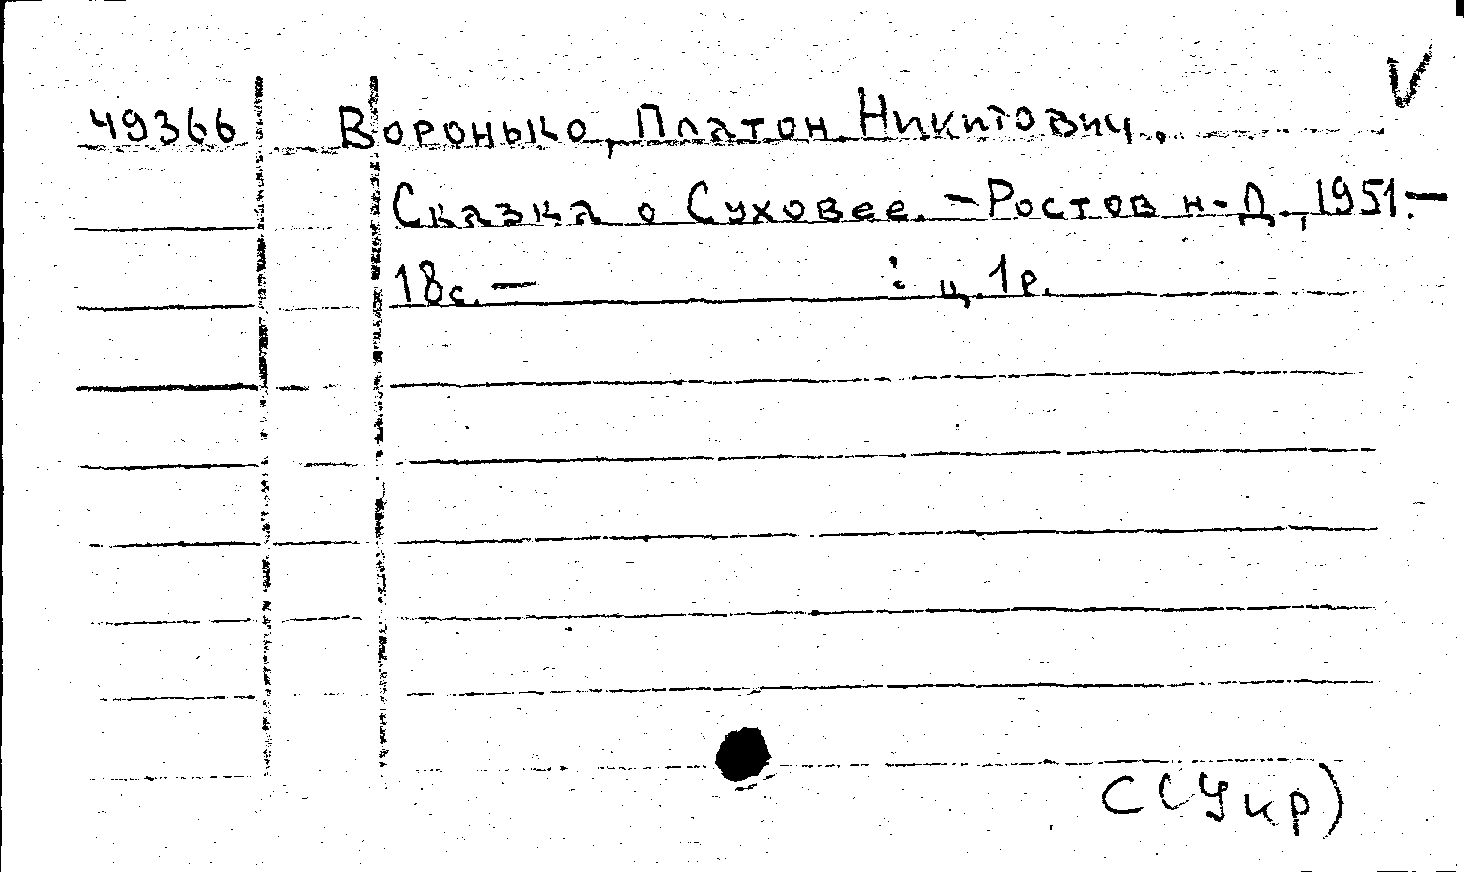 V
49366 Воронько, Платон Никитович.
Сказка о Суховее. – Ростов н-Д., 1951. –
18с. – : ц. 1р.
С(Укр)